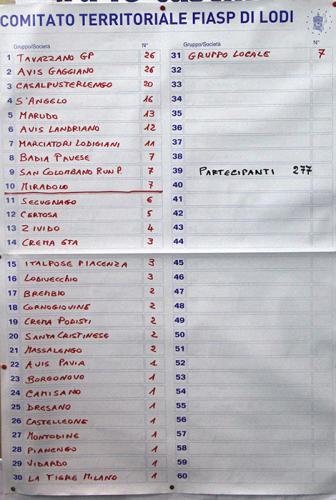 COMITATO TERRITORIALE FIASP DI LODI
Gruppo/Società N°
1 TAVAZZANO GP 26
2 AVIS GAGGIANO 26
3 CASALPUSTERLENGO 20
4 S'ANGELO 16
5 MARUDO 13
6 AVIS LANDRIANO 12
7 MARCIATORI LODIGIANI 11
8 BADIA PAVESE 7
9 SAN COLOMBANO RUN P. 7
10 MIRADOLO 7
11 SECUGNAGO 6
12 CERTOSA 5
13 ZIVIDO 4
14 CREMA GTA 3
15 ITALPOSE PIACENZA 3
16 LODIVECCHIO 3
17 BREMBIO 2
18 CORNOGIOVINE 2
19 CREMA PODISTI 2
20 SANTA CRISTINESE 2
21 MASSALENGO 2
22 AVIS PAVIA 1
23 BORGONOVO 1
24 CAMISANO 1
25 DRESANO 1
26 CASTELLEONE 1
27 MONTODINE 1
28 PIANENGO 1
29 VIDARDO 1
30 LA TIGRE MILANO 1
Gruppo/Società N°
31 GRUPPO LOCALE 7
32
33
34
35
36
37
38
39 PARTECIPANTI 277
40
41
42
43
44
45
46
47
48
49
50
51
52
53
54
55
56
57
58
59
60